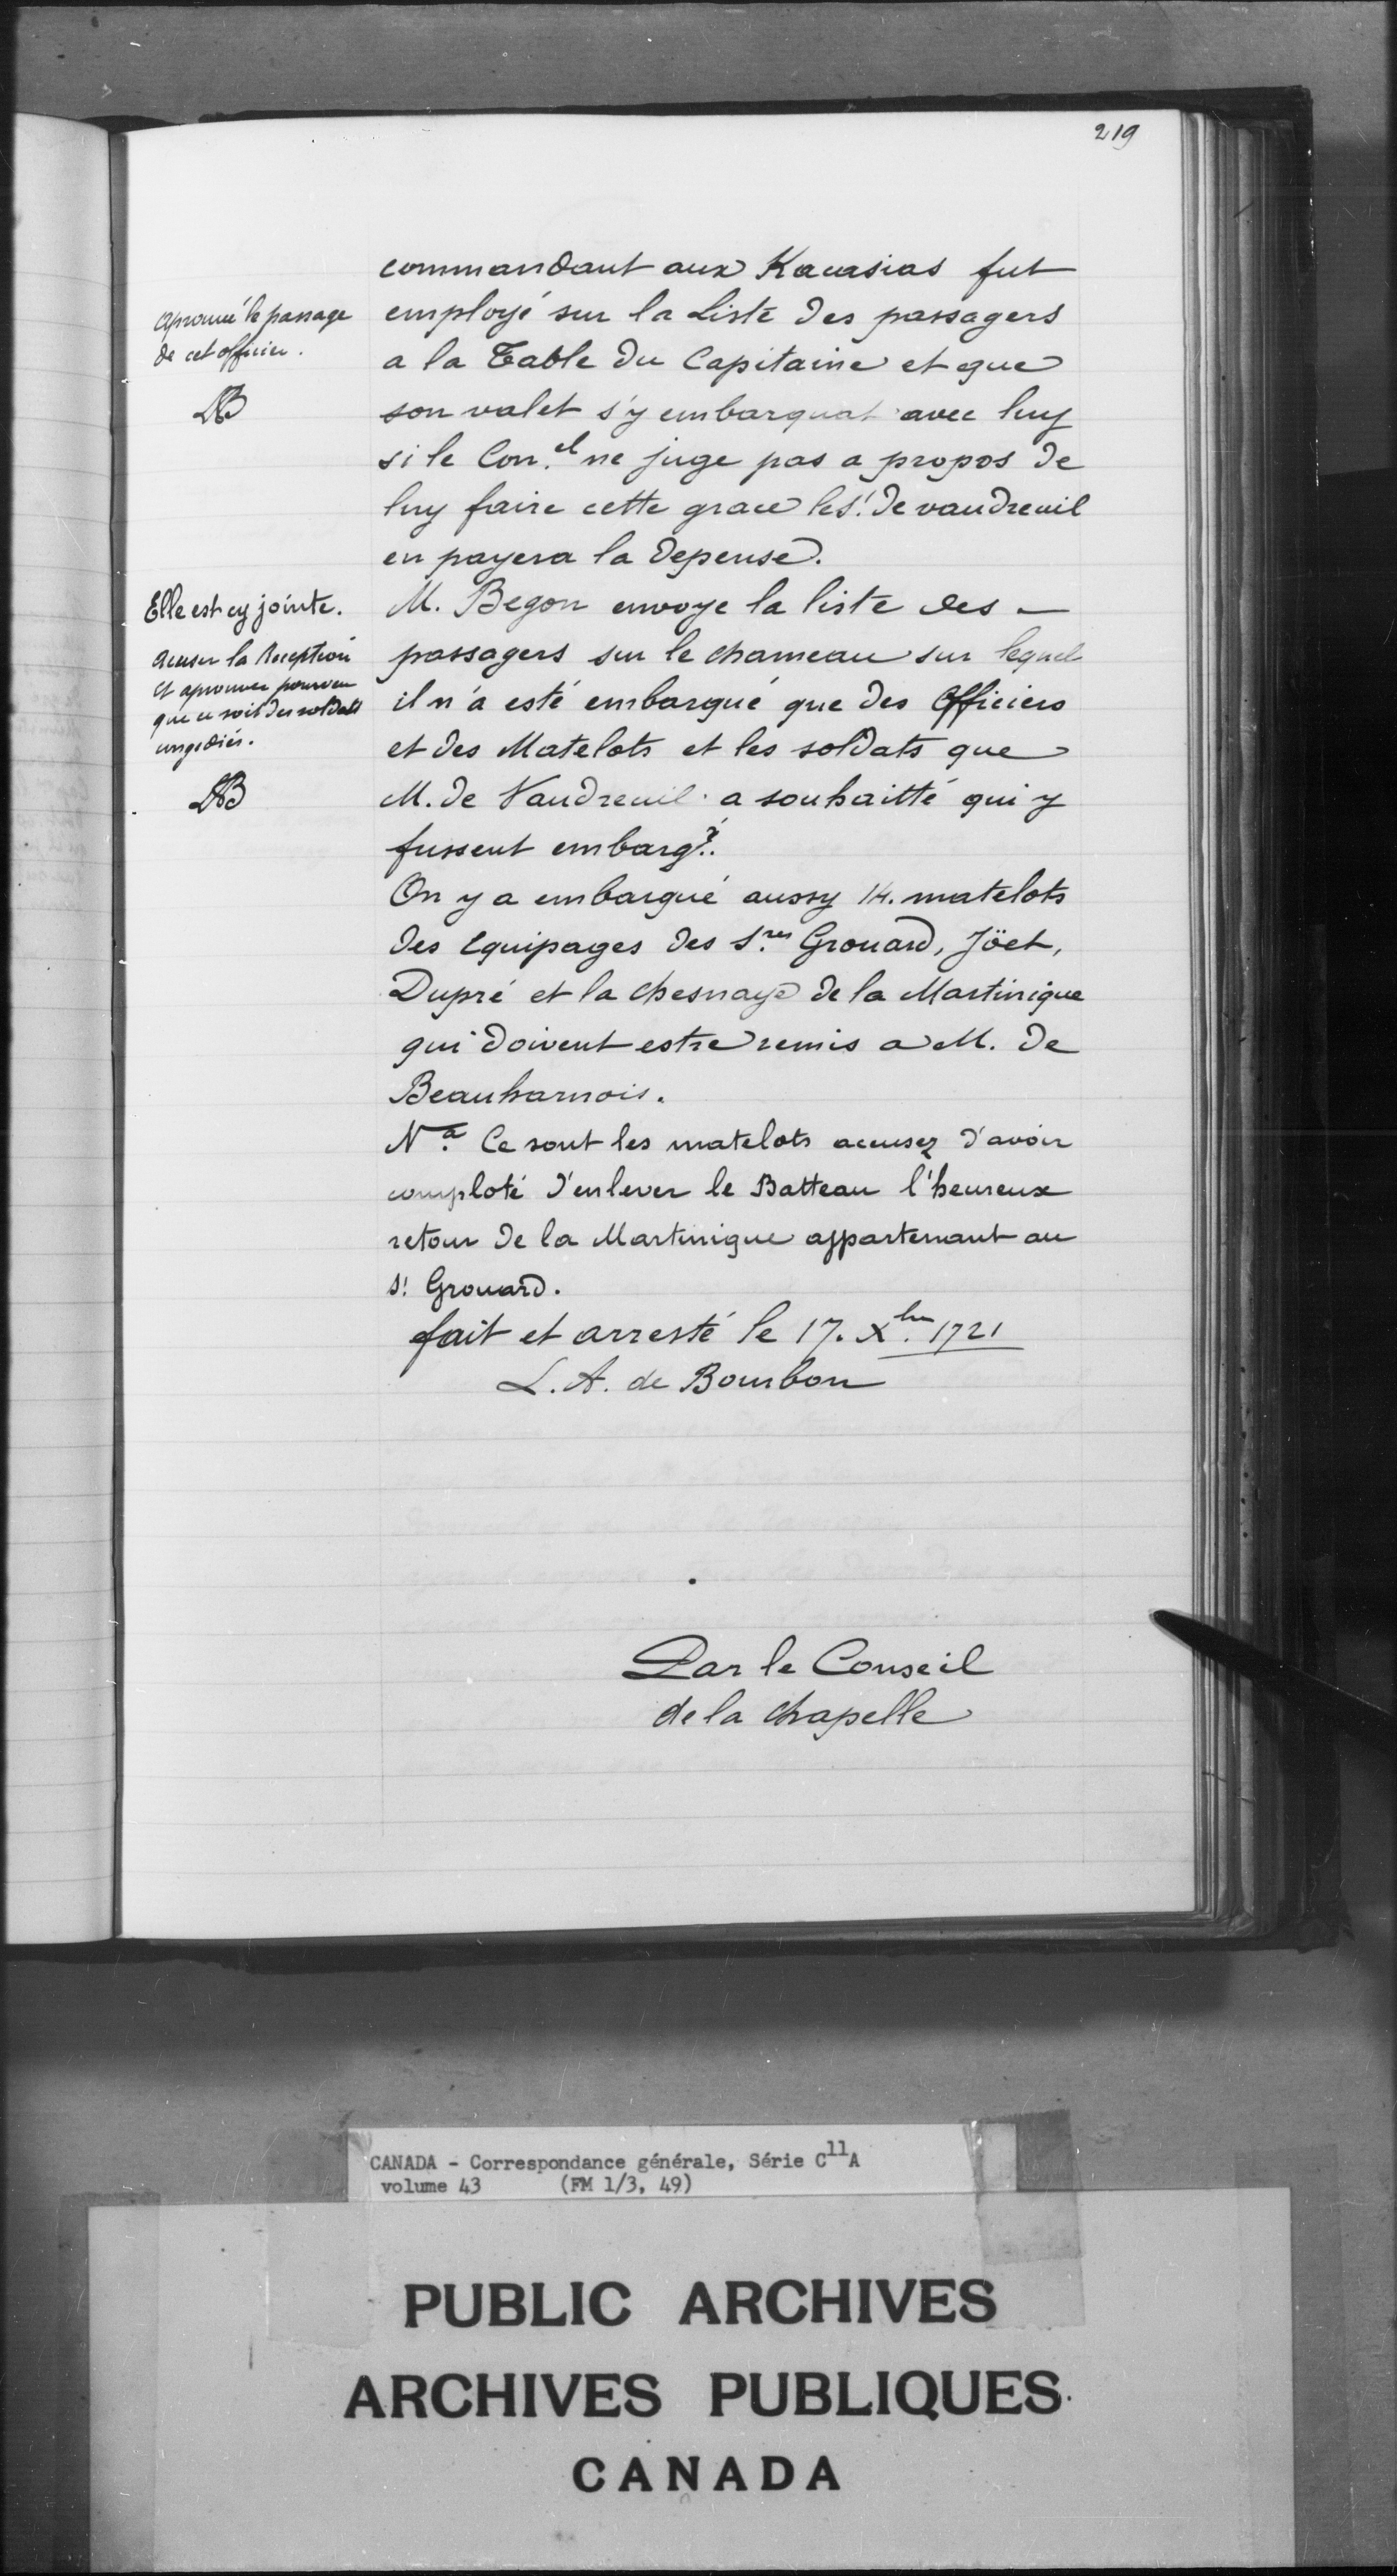 219
commandant aux Kacasias fut
employé sur la Liste des passagers
a la Table du Capitaine et que
son valet s'y embarquat avec luy
si le Con.el ne juge pas a propos de
luy faire cette grace le s.r de vaudreuil
en payera la depense.
Aprouvé le passage
de cet officier.
LAB
M. Begon envoye la liste des
passagers sur le chameau sur lequel
il n'a esté embarqué que des officiers
et des Matelots et les soldats que
M. de Vaudreuil a souhaitté qui y
fussent embarq.
Elle est cy jointe.
acuser la Reception
et aprouver pourveu
que ce soit des soldats
congediés.
LAB
On y a embarqué aussy 14. matelots
des equipages des s.rs Grouard, Jöet,
Dupré et la chesnaye de la Martinique
qui doivent estre remis a M. de
Beauharnois.
N.a Ce sont les matelots accusez d'avoir
comploté d'enlever le Batteau l'heureux
retour de la Martinique appartenant au
s.r Grouard.
fait et arresté le 17. Xbre 1721
L. A. de Bourbon
Par le Conseil
de la chapelle
CANADA - Correspondance générale, Série C11A
volume 43 (FM 1/3, 49)
PUBLIC ARCHIVES
ARCHIVES PUBLIQUES
CANADA